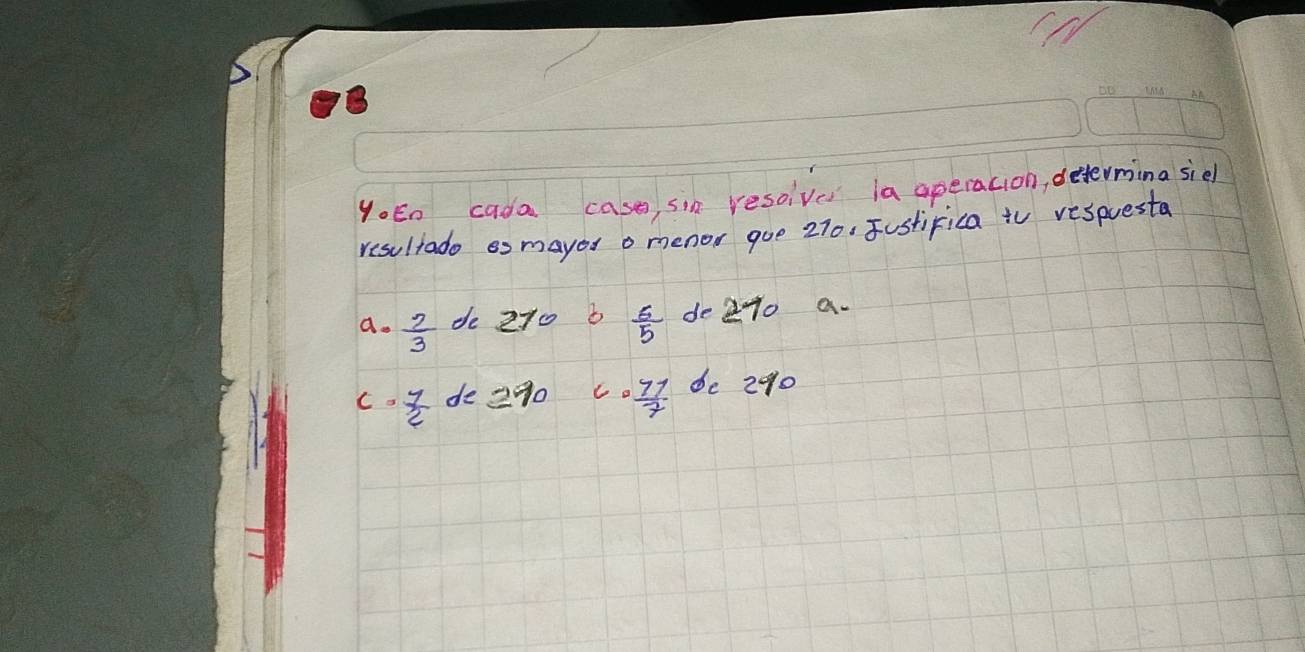 DD MM AA
B
4. En cada caso, sin resolver la operacion, determina si el
resultado es mayor o menor que 270. Justifica tu respuesta
a. 2/3 de 270 b 6/5 de 270 a.
c. 7/2 de 270 c. 11/7 de 270